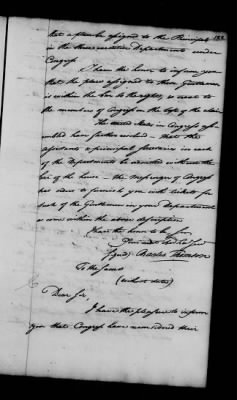 that a place be assigned to the Principals
in the three executive Departments under
Congress
I have the honor to inform you
that the place assigned to those Gentlemen
is within the bar to the right, as next to
the members of Congress on the left of the chair
The United States in Congress assem
bled have farther ordered - that the
assistants & principal secretaries in each
of the Departments be admitted without the
bar of the house - the messenger of Congress
has orders to furnish you with tickets for
such of the Gentlemen in your Department
as come within the above description
I have the honor to be &c
(signd) Charles Thomson
To the Same
(without date)
Dear Sir,
I have the pleasure to inform
you that Congress have considered their